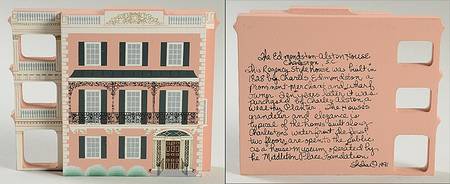 The Edmondston-Alston House
Charleston, S.C.
This Regency Style house was built in
1828 by Charles Edmondston, a
prominent Merchant and wharf
owner. Ten years later it was
purchased by Charles Alston a
wealthy Planter. The House's
grandeur and elegance is
typical of the homes built along
Charleston's waterfront. The first
two floors are open to the public
as a house museum, operated by
the Middleton Place Foundation.
1998